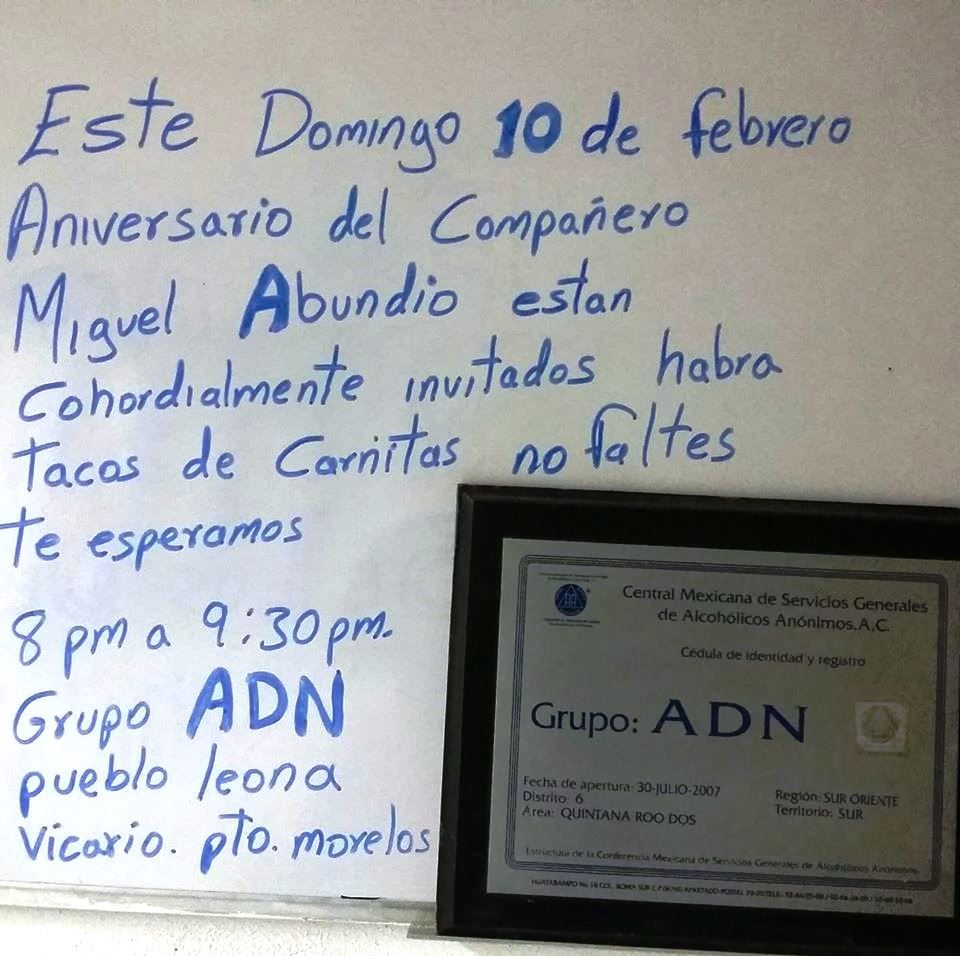 Este Domingo 10 de febrero
Aniversario del Compañero
Miguel Abundio estan
Cohordialmente invitados habra
tacos de Carnitas no faltes
te esperamos
8 pm a 9:30 pm.
Grupo ADN
pueblo leona
Vicario. pto. morelos
Central Mexicana de Servicios Generales
de Alcohólicos Anónimos, A.C.
Cédula de identidad y registro
Grupo: ADN
Fecha de apertura: 30-JULIO-2007
Distrito: 6
Área: QUINTANA ROO DOS
Región: SUR ORIENTE
Territorio: SUR
Estructura de la Conferencia Mexicana de Servicios Generales de Alcohólicos Anónimos
HUATABAMPO No. 18 COL. ROMA SUR C.P. 06760 APARTADO POSTAL